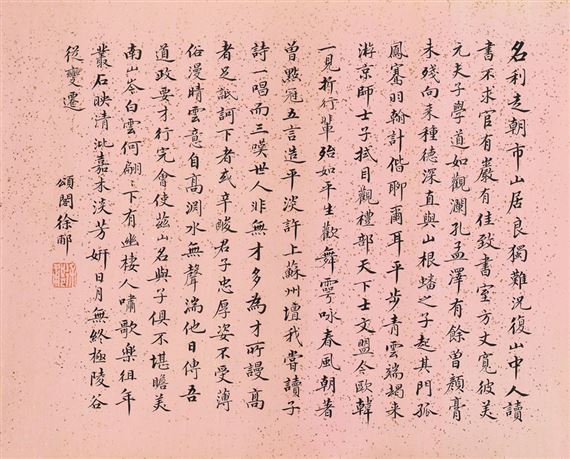 名利走朝市山居良獨難況復山中人讀
書不求官有巖有佳致書室方丈寬彼美
元夫子學道如觀瀾孔孟澤有餘曾顏膏
未殘向來種德深直與山根蟠之子起其門孤
鳳騫羽翰計偕聊爾耳平步青雲端朅來
游京師士子拭目觀禮部天下士文盟今歐韓
一見折行輩殆如平生歡舞雩咏春風朝著
曾點冠五言造平淡許上蘇州壇我嘗讀子
詩一唱而三嘆世人非無才多為才所謾高
者足詆訶下者或辛酸君子忠厚姿不受薄
俗漫晴雲意自高淵水無聲湍他日傳吾
道政要才行完會使茲山名與子俱不堪瞻美
南山今白雲何翩〻下有幽棲人嘯歌樂徂年
叢石映清泚嘉木淡芳妍日月無終極陵谷
從變遷
頌閣徐郙